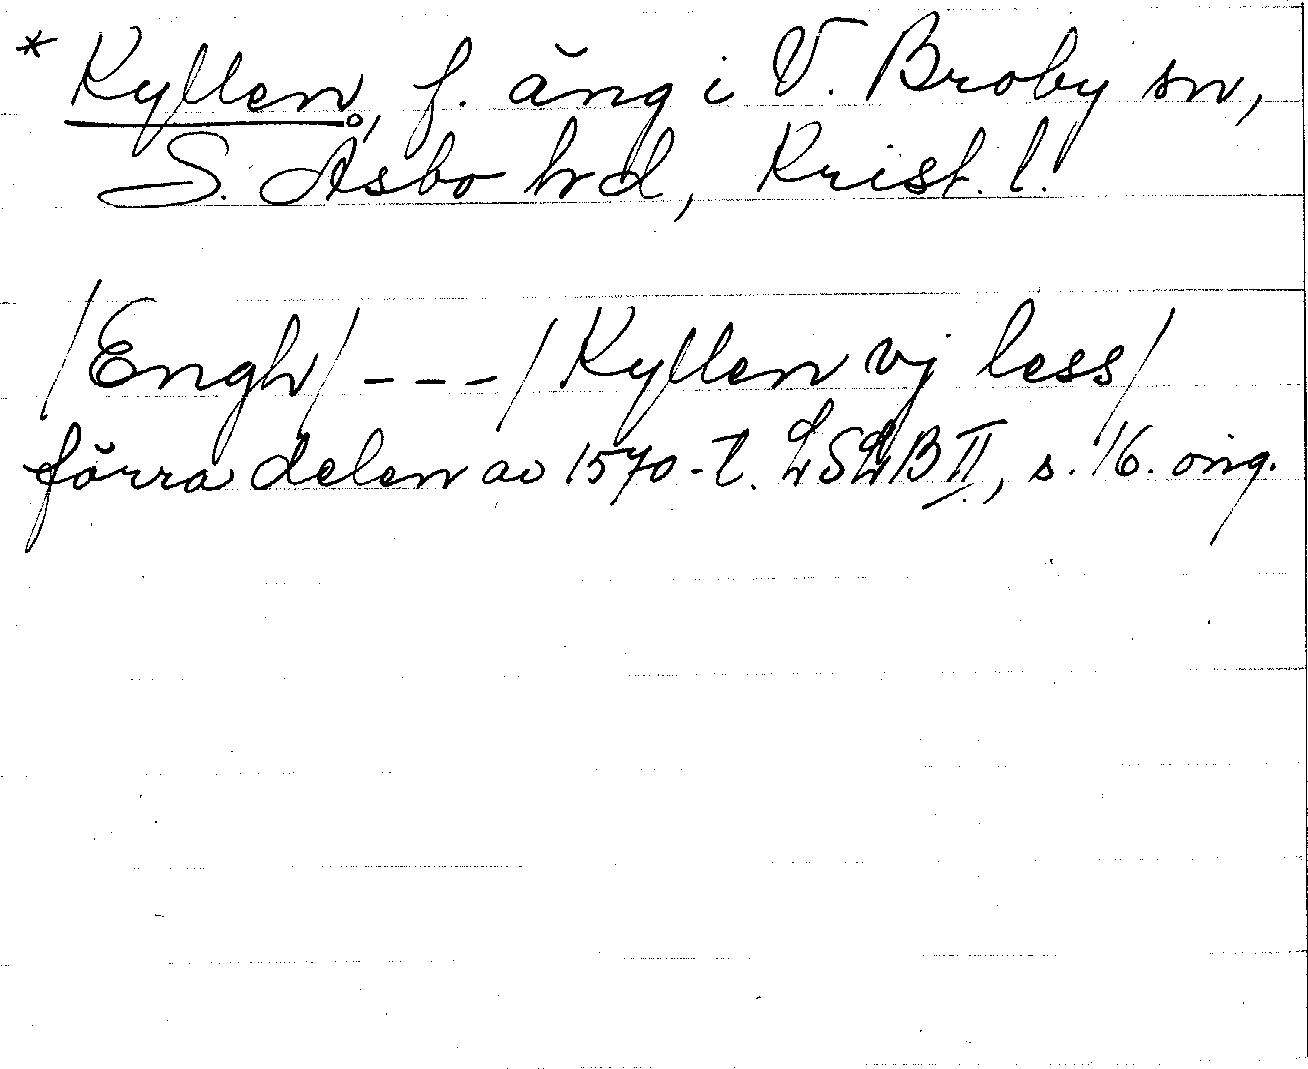 * Kyllen, f. äng i V. Broby sn,
S. Åsbo hd, Krist. l.
/Engh/ --- /Kyllen vj less/
förra delen av 1570-t. LSLB II, s. 16. orig.